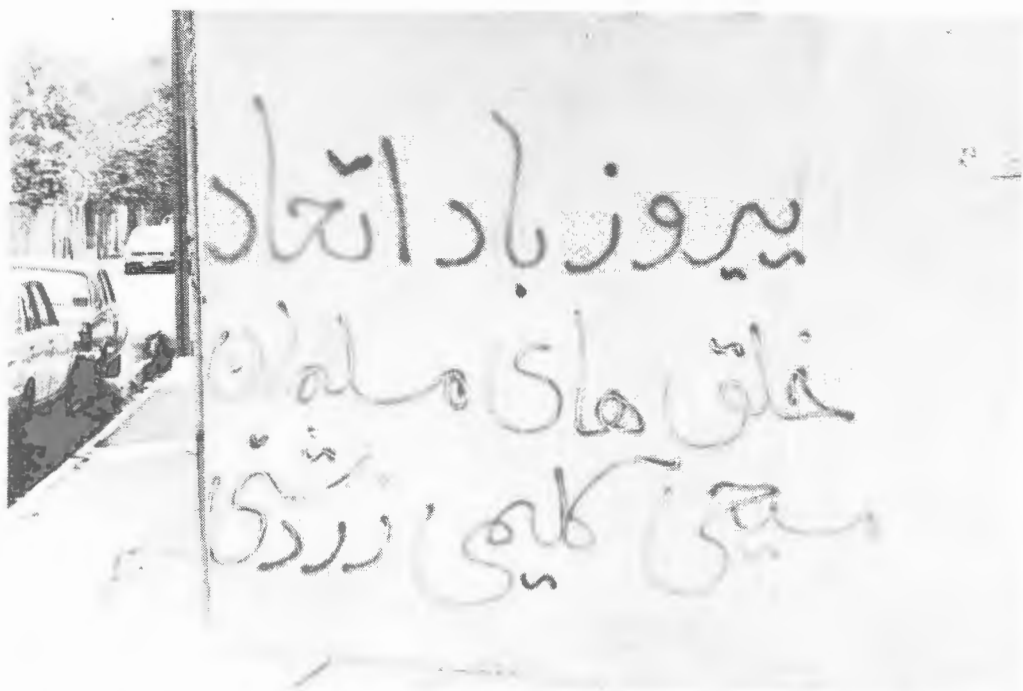 پیروز باد اتحاد
خلق های مسلمان
مسیحی کلیمی زرتشتی